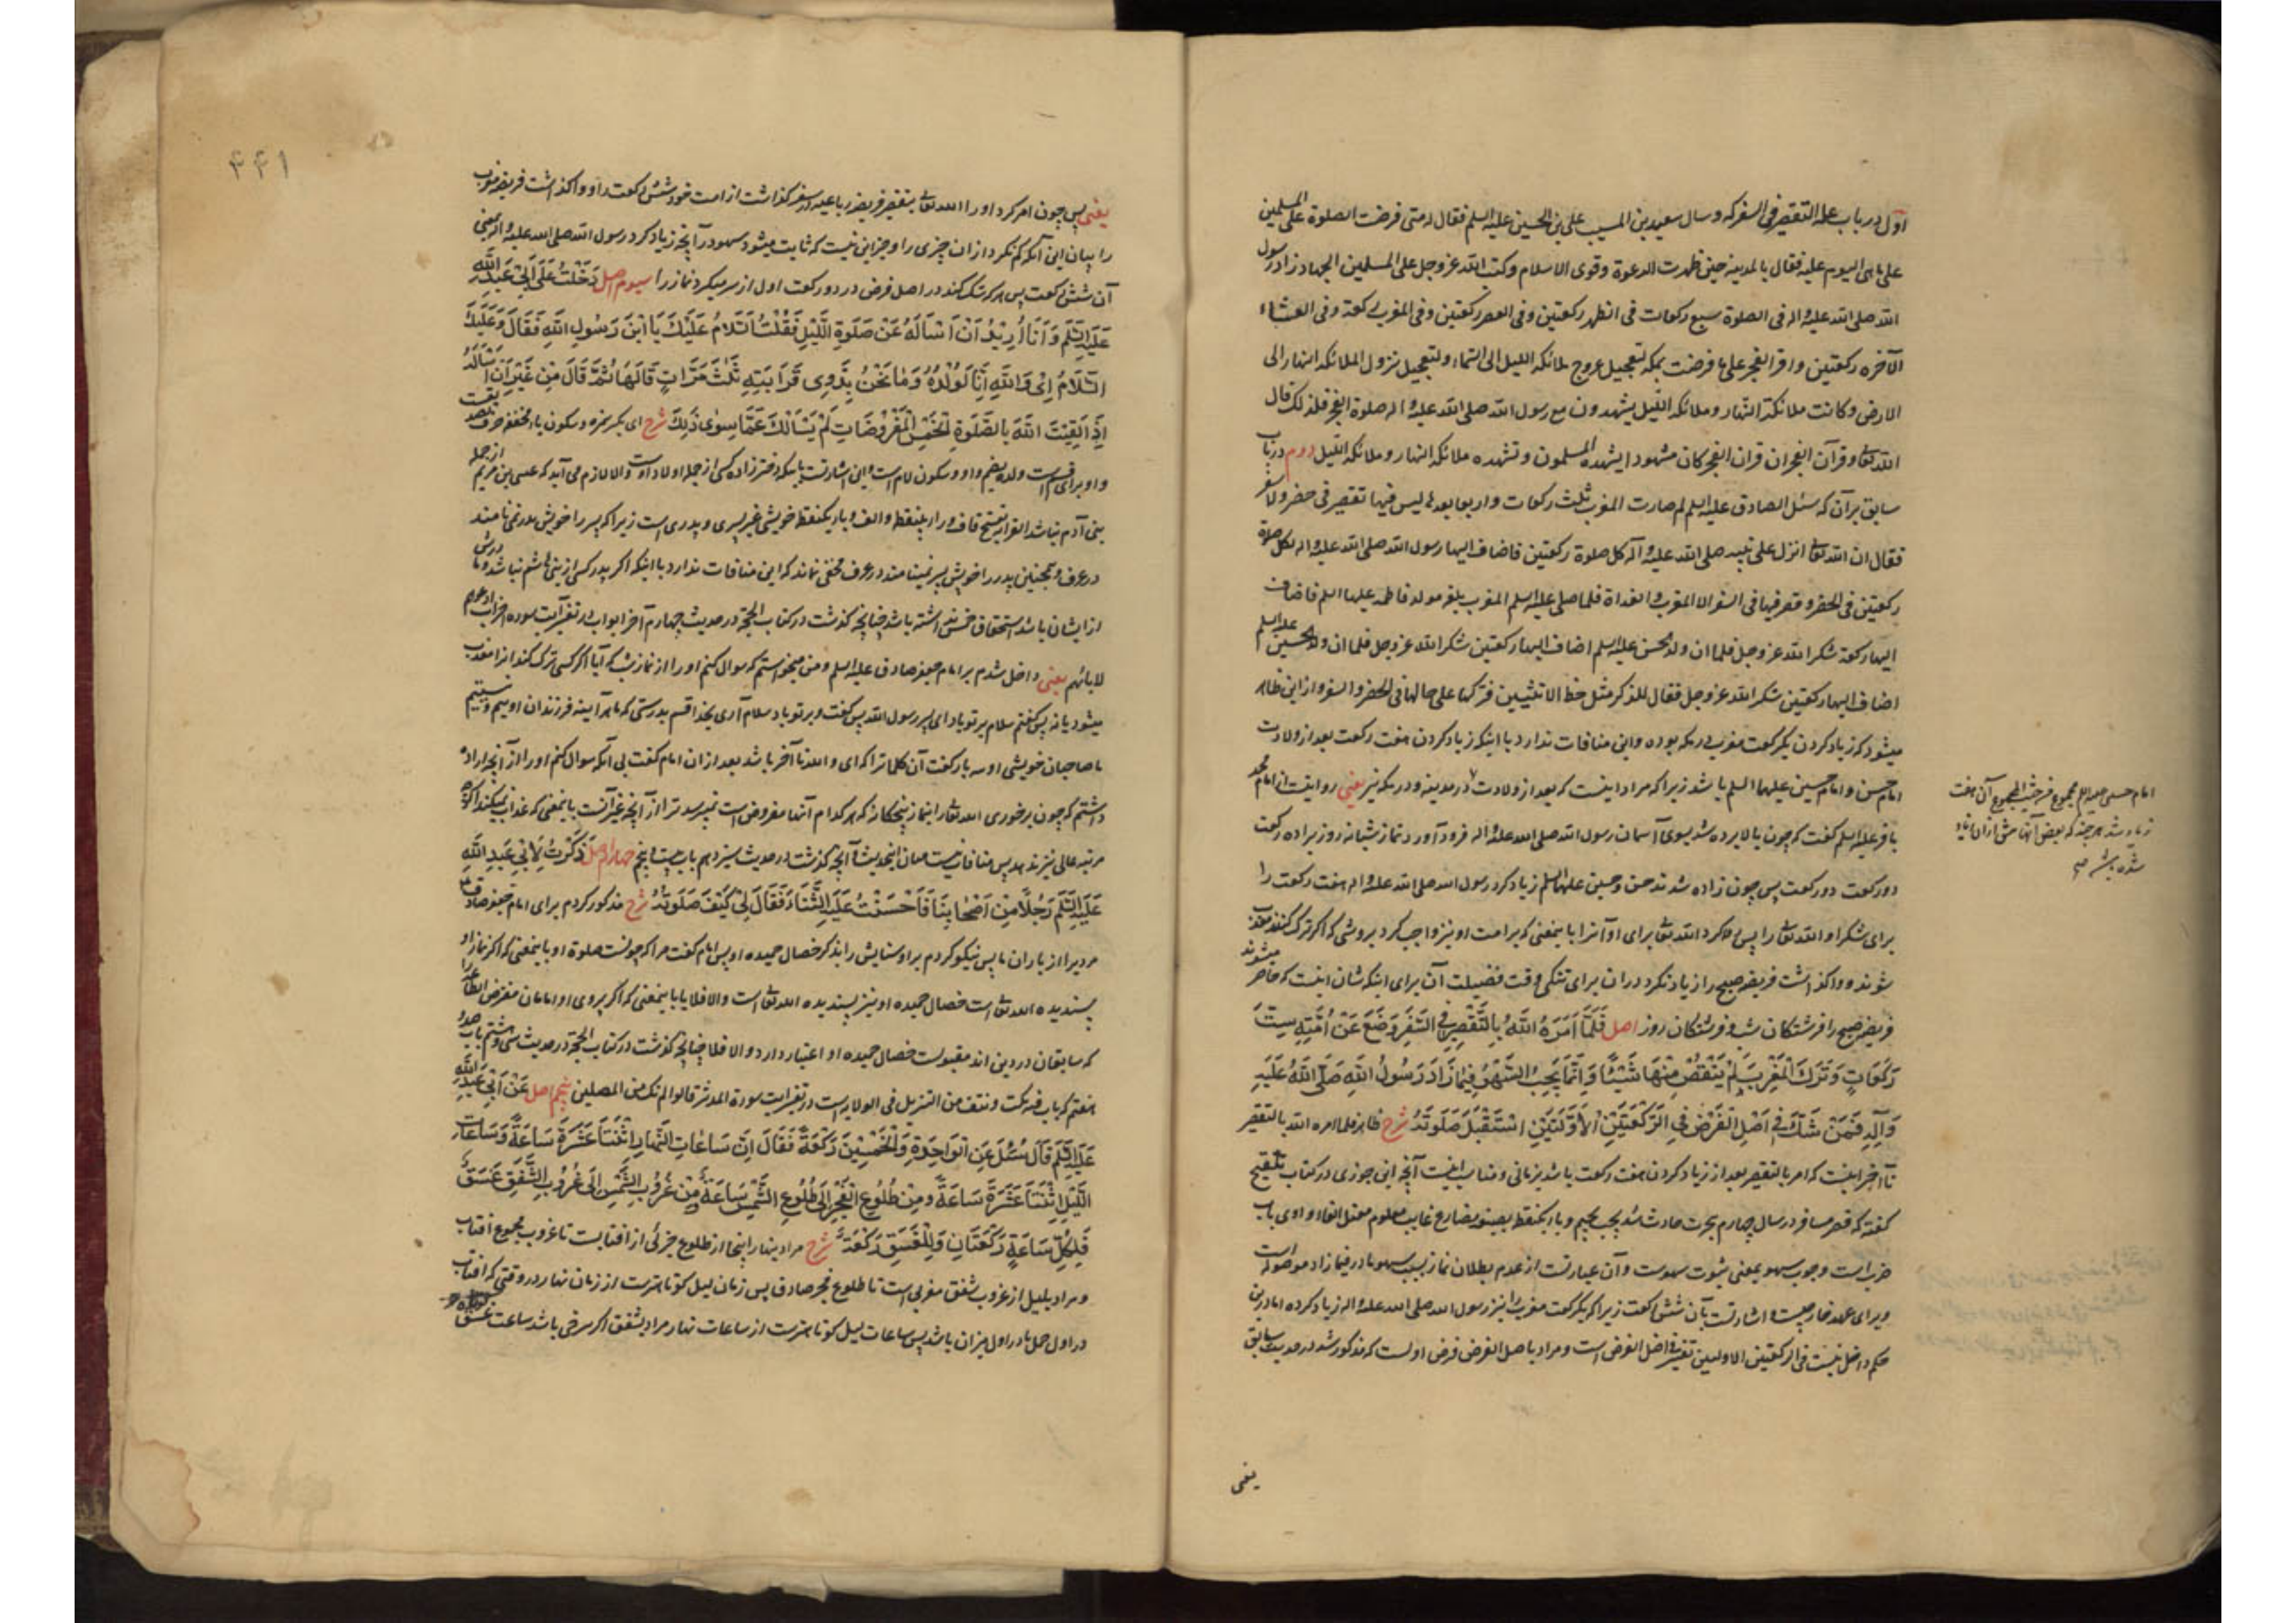 اوّل در باب علة التقصیر فی السفر که و سال سعید بن المسیب علی بن الحسین علیه السلم فقال له متی فرضت الصلوة علی المسلمین
علی ما هی الیوم علیه فقال بالمدینه حین ظهرت الدعوة و قوی الاسلام و کتب الله عز و جل علی المسلمین الجهاد زاد رسول
الله صلی الله علیه و اله فی الصلوة سبع رکعات فی الظهر رکعتین و فی العصر رکعتین و فی المغرب رکعة و فی العشاء
الآخرة رکعتین و اقر الفجر علی ما فرضت بمکه لتعجیل عروج ملائکه اللیل الی السماء و لتعجیل نزول الملائکه النهار الی
الارض و کانت ملائکة النهار و ملائکه اللیل یشهدون مع رسول الله صلی الله علیه و اله صلوة الفجر فلذلک قال
الله تعالی و قرآن الفجر ان قرآن الفجر کان مشهودا یشهده المسلمون و تشهده ملائکه النهار و ملائکه اللیل دوم در باب
سابق بر آن که سئل الصادق علیه السلم لم صارت المغرب ثلث رکعات و اربعا بعدها لیس فیها تقصیر فی حضر و لا سفر
فقال ان الله تعالی انزل علی نبیه صلی الله علیه و آله کل صلوة رکعتین فاضاف الیها رسول الله صلی الله علیه و اله لکل صلاة
رکعتین فی الحضر و قصر فیها فی السفر الا المغرب و الغداة فلما صلی علیه السلم المغرب بلغه مولد فاطمه علیها السلم فاضاف
الیها رکعة شکرا لله عز و جل فلما ان ولد الحسن علیه السلم اضاف الیها رکعتین شکرا لله عز و جل فلما ان ولد الحسین علیه السلم
اضاف الیها رکعتین شکرا لله عز و جل فقال للذکر مثل حظ الانثیین فترکها علی حالها فی الحضر و السفر و از این ظاهر
میشود که زیاد کردن یک رکعت مغرب در مکه بوده و این منافات ندارد با اینکه زیاد کردن هفت رکعت بعد از ولادت
امام حسن و امام حسین علیهما السلم باشد زیرا که مراد اینست که بعد از ولادت در مدینه و در مکه نیز یعنی روایتست از امام محمد
باقر علیه السلم گفت که چون بالا برده شد بسوی آسمان رسول الله صلی الله علیه و اله فرود آورد نماز شبانه روز برا ده رکعت
دو رکعت دو رکعت پس چون زاده شدند حسن و حسین علیهما السلم زیاد کرد رسول الله صلی الله علیه و اله هفت رکعت را
برای شکر او الله تعالی را پس روا کرد الله تعالی برای او آنرا باینمعنی که بر امت او نیز واجب کرد بروشی که اگر ترک کنند معذب
شوند و واگذاشت فریضه صبح را زیاد نکرد در ان برای تنگی وقت فضیلت آن برای اینکه شان اینست که حاضر میشوند
فریضه صبح را فرشتگان شب و فرشتگان روز اصل فَلَمَّا اَمَرَهُ اللهُ بِالتَّقْصِیرِ فِی السَّفَرِ وَضَعَ عَنْ اُمَّتِهِ سِتَّ
رَکَعَاتٍ وَ تَرَکَ الْمَغْرِبَ لَمْ یَنْقُصْ مِنْهَا شَیْئًا وَ اِنَّمَا یَجِبُ السَّهْوُ فِیمَا زَادَ رَسُولُ اللهِ صَلَّی اللهُ عَلَیْهِ
وَ آلِهِ فَمَنْ شَکَّ فِی اَصْلِ الْفَرْضِ فِی الرَّکْعَتَیْنِ الْاُوْلَتَیْنِ اسْتَقْبَلَ صَلَوتَهُ شرح ظاهر فلما امره الله بالتقصیر
تا آخر اینست که امر بالتقصیر بعد از زیاد کردن هفت رکعت باشد بزمانی و مناسب اینست آنچه ابن جوزی در کتاب تلقیح
گفته که قصر مسافر در سال چهارم هجرت حادث شد یجب بجیم و باء یکنقطه بصیغه مضارع غایب معلوم معتل الفاء واوی باب
ضرب است و وجوب سهو بمعنی ثبوت سهوست و آن عبارتست از عدم بطلان نماز بسبب سهو ما در فیما زاد موصوله است
و برای عهد خارجیست و اشارتست بآن شش رکعت زیرا که یک رکعت مغرب را نیز رسول الله صلی الله علیه و اله زیاد کرده اما در این
حکم داخل نیست فی الرکعتین الاولیین تفسیر فی اصل الفرض است و مراد باصل الفرض فرض اولست که مذکور شد در حدیث سابق
یعنی
امام حسین علیه السلم مجموع
زیاد شد هر چند که بعض آنها پیش از آن زیاد
شده باشد
۴۴۱
یعنی پس چون امر کرد او را الله تعالی بتقصیر فریضه رباعیه در سفر گذاشت از امت خود شش رکعت را و واگذاشت فریضه مغرب
را بیان این آنکه کم نکرد از ان چیزی را و جز این نیست که ثابت میشود سهو در آنچه زیاد کرد رسول الله صلی الله علیه و اله یعنی
آن شش رکعت پس هر که شک کند در اصل فرض در دو رکعت اول از سر میکرد نماز را سیوم اصل دَخَلْتُ عَلَی اَبِی عَبْدِ اللهِ
عَلَیْهِ السَّلَم وَ اَنَا اُرِیْدُ اَنْ اَسْاَلَهُ عَنْ صَلَوةِ اللَّیْلِ فَقُلْتُ السَّلَامُ عَلَیْکَ یَا ابْنَ رَسُولِ اللهِ فَقَالَ وَ عَلَیْکَ
السَّلَامُ اِیْ وَ اللهِ اِنَّا لَوُلْدُهُ وَ مَا نَحْنُ بِذَوِی قَرَابَتِهِ ثَلٰثَ مَرَّاتٍ قَالَهَا ثُمَّ قَالَ مِنْ غَیْرِ اَنْ اَسْاَلَهُ
اِذَا لَقِیْتَ اللهَ بِالصَّلَوةِ الْخَمْسِ الْمَفْرُوضَاتِ لَمْ یَسْاَلْکَ عَمَّا سِوٰی ذٰلِکَ شرح ای بکسر همزه و سکون یاء مخففه حرف تصدیقست
و واو برای قسم است ولد بضم واو و سکون لام است و این اشارتست باینکه دخترزاده کسی از جمله اولاد اوست و الا لازم می آید که عیسی بن مریم از جمله
بنی آدم نباشد القرابة بفتح قاف و راء بینقطه و الف و باء یکنقطه خویشی غیر پسری و پدری است زیرا که پسر را خویش پدر نمی نامند
در عرف و همچنین پدر را خویش پسر نمینامند در عرف مخفی نماند که این منافات ندارد با اینکه اگر پدر کسی از بنی هاشم نباشد و مادرش
از ایشان باشد استحقاق خمس نداشته باشد چنانچه گذشت در کتاب الحجة در حدیث چهارم آخر ابواب در تفسیر آیت سوره احزاب ادعوهم
لابائهم یعنی داخل شدم بر امام جعفر صادق علیه السلم و من میخواستم که سوال کنم او را از نماز شب که آیا اگر کسی ترک کند انرا معذب
میشود یا نه پس گفتم سلام بر تو باد ای پسر رسول الله پس گفت و بر تو باد سلام آری بخدا قسم بدرستی که ما هر آینه فرزندان اوییم و نیستیم
ما صاحبان خویشی او سه بار گفت آن کلمات را که ای و الله تا آخر باشد بعد از ان امام گفت بی آنکه سوال کنم او را از آنچه اراده
داشتم که چون برخوری الله تعالی را بنماز پنجگانه که هر کدام آنها مفروض است نمیپرسد ترا از آنچه غیر آنست باینمعنی که عذاب نمیکند اگر چه
مرتبه عالی نیز ندهد پس منافات نیست میان اینحدیث و آنچه گذشت در حدیث سیزدهم باب بیست و پنجم چهارم اصل ذَکَرْتُ لِاَبِی عَبْدِ اللهِ
عَلَیْهِ السَّلَم رَجُلًا مِنْ اَصْحَابِنَا فَاَحْسَنْتُ عَلَیْهِ الثَّنَاءَ فَقَالَ لِی کَیْفَ صَلَوتُهُ شرح مذکور کردم برای امام جعفر صادق
مردیرا از یاران ما پس نیکو کردم بر او ستایش را بذکر خصال حمیده او پس امام گفت مرا که چونست صلوة او باینمعنی که اگر نماز او
پسندیده الله تعالی است خصال حمیده او نیز پسندیده الله تعالی است و الا فلا یا باینمعنی که اگر پیروی او امامان مفترض الطاعة را
که سابقان در دین اند مقبولست خصال حمیده او اعتبار دارد و الا فلا چنانچه گذشت در کتاب الحجة در حدیث سی و هشتم باب صد و
هفتم که باب فیه نکت و نتف من التنزیل فی الولایه است در تفسیر آیت سورة المدثر قالوا لم نک من المصلین پنجم اصل عَنْ اَبِی عَبْدِ اللهِ
عَلَیْهِ السَّلَم قَالَ سُئِلَ عَنِ الْوَاحِدَةِ وَ الْخَمْسِیْنَ رَکْعَةً فَقَالَ اِنَّ سَاعَاتِ النَّهَارِ اثْنَتَا عَشَرَةَ سَاعَةً وَ سَاعَاتِ
اللَّیْلِ اثْنَتَا عَشَرَةَ سَاعَةً وَ مِنْ طُلُوعِ الْفَجْرِ اِلَی طُلُوعِ الشَّمْسِ سَاعَةٌ وَ مِنْ غُرُوبِ الشَّمْسِ اِلَی غُرُوبِ الشَّفَقِ غَسَقٌ
فَلِکُلِّ سَاعَةٍ رَکْعَتَانِ وَ لِلْغَسَقِ رَکْعَةٌ شرح مراد بنهار اینجا از طلوع جزئی از افتابست تا غروب مجموع افتاب
و مراد بلیل از غروب شفق مغربی است تا طلوع فجر صادق پس زمان لیل کوتاهترست از زمان نهار در وقتی که افتاب
در اول حمل یا در اول میزان باشد پس ساعات لیل کوتاهترست از ساعات نهار مراد بشفق اگر سرخی باشد ساعت غسق